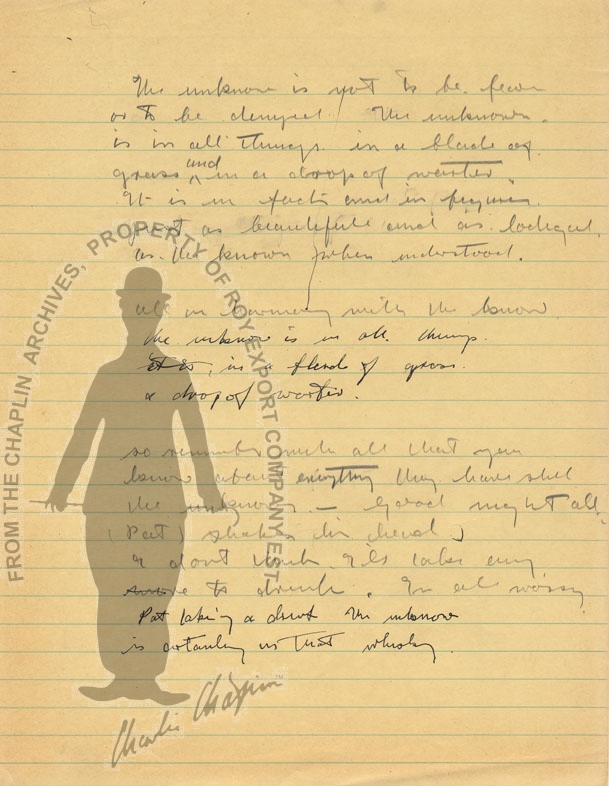 The unknown is not to be fear
or to be denyed The unknown.
is in all things. in a blade of.
grass and in a drop of warter.
It is in facts and in figures
great as beautiful and as logical
as the known when understood.
all in harmony with the know.
the unknow is in all things.
in a blend of grass.
a drop of warter.
so remember with all that you
know about everything they have still
the unknown – Good night all.
(Pat) shakes his head)
I dont think I'll take any
more to drink. I'm all
Pat taking a drink The unknow
is certainly in that whisky.
FROM THE CHAPLIN ARCHIVES, PROPERTY OF ROY EXPORT COMPANY EST.
Charlie Chaplin™